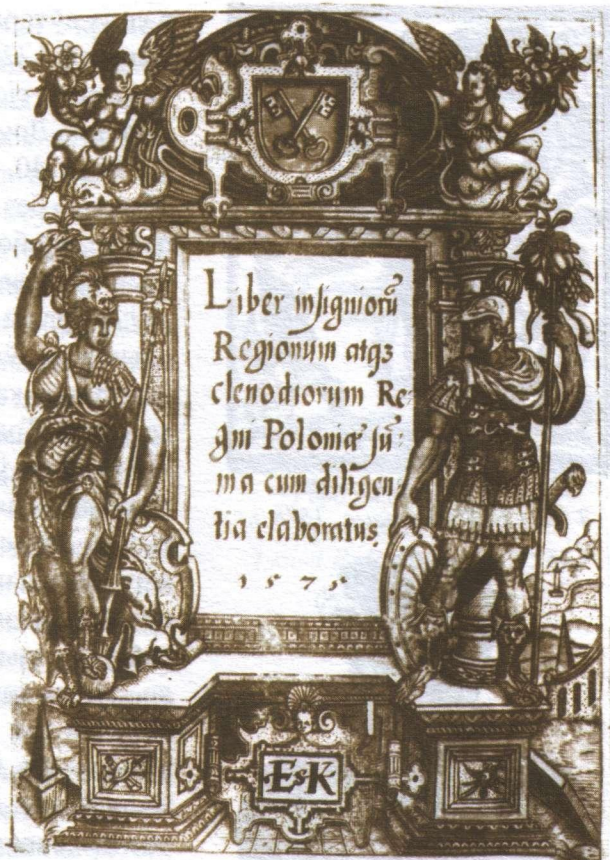 Liber insigniorũ
Regionum atqꝫ
clenodiorum Re:
gni Poloniæ sũ:
ma cum diligen
tia elaboratus,
1575
E&K